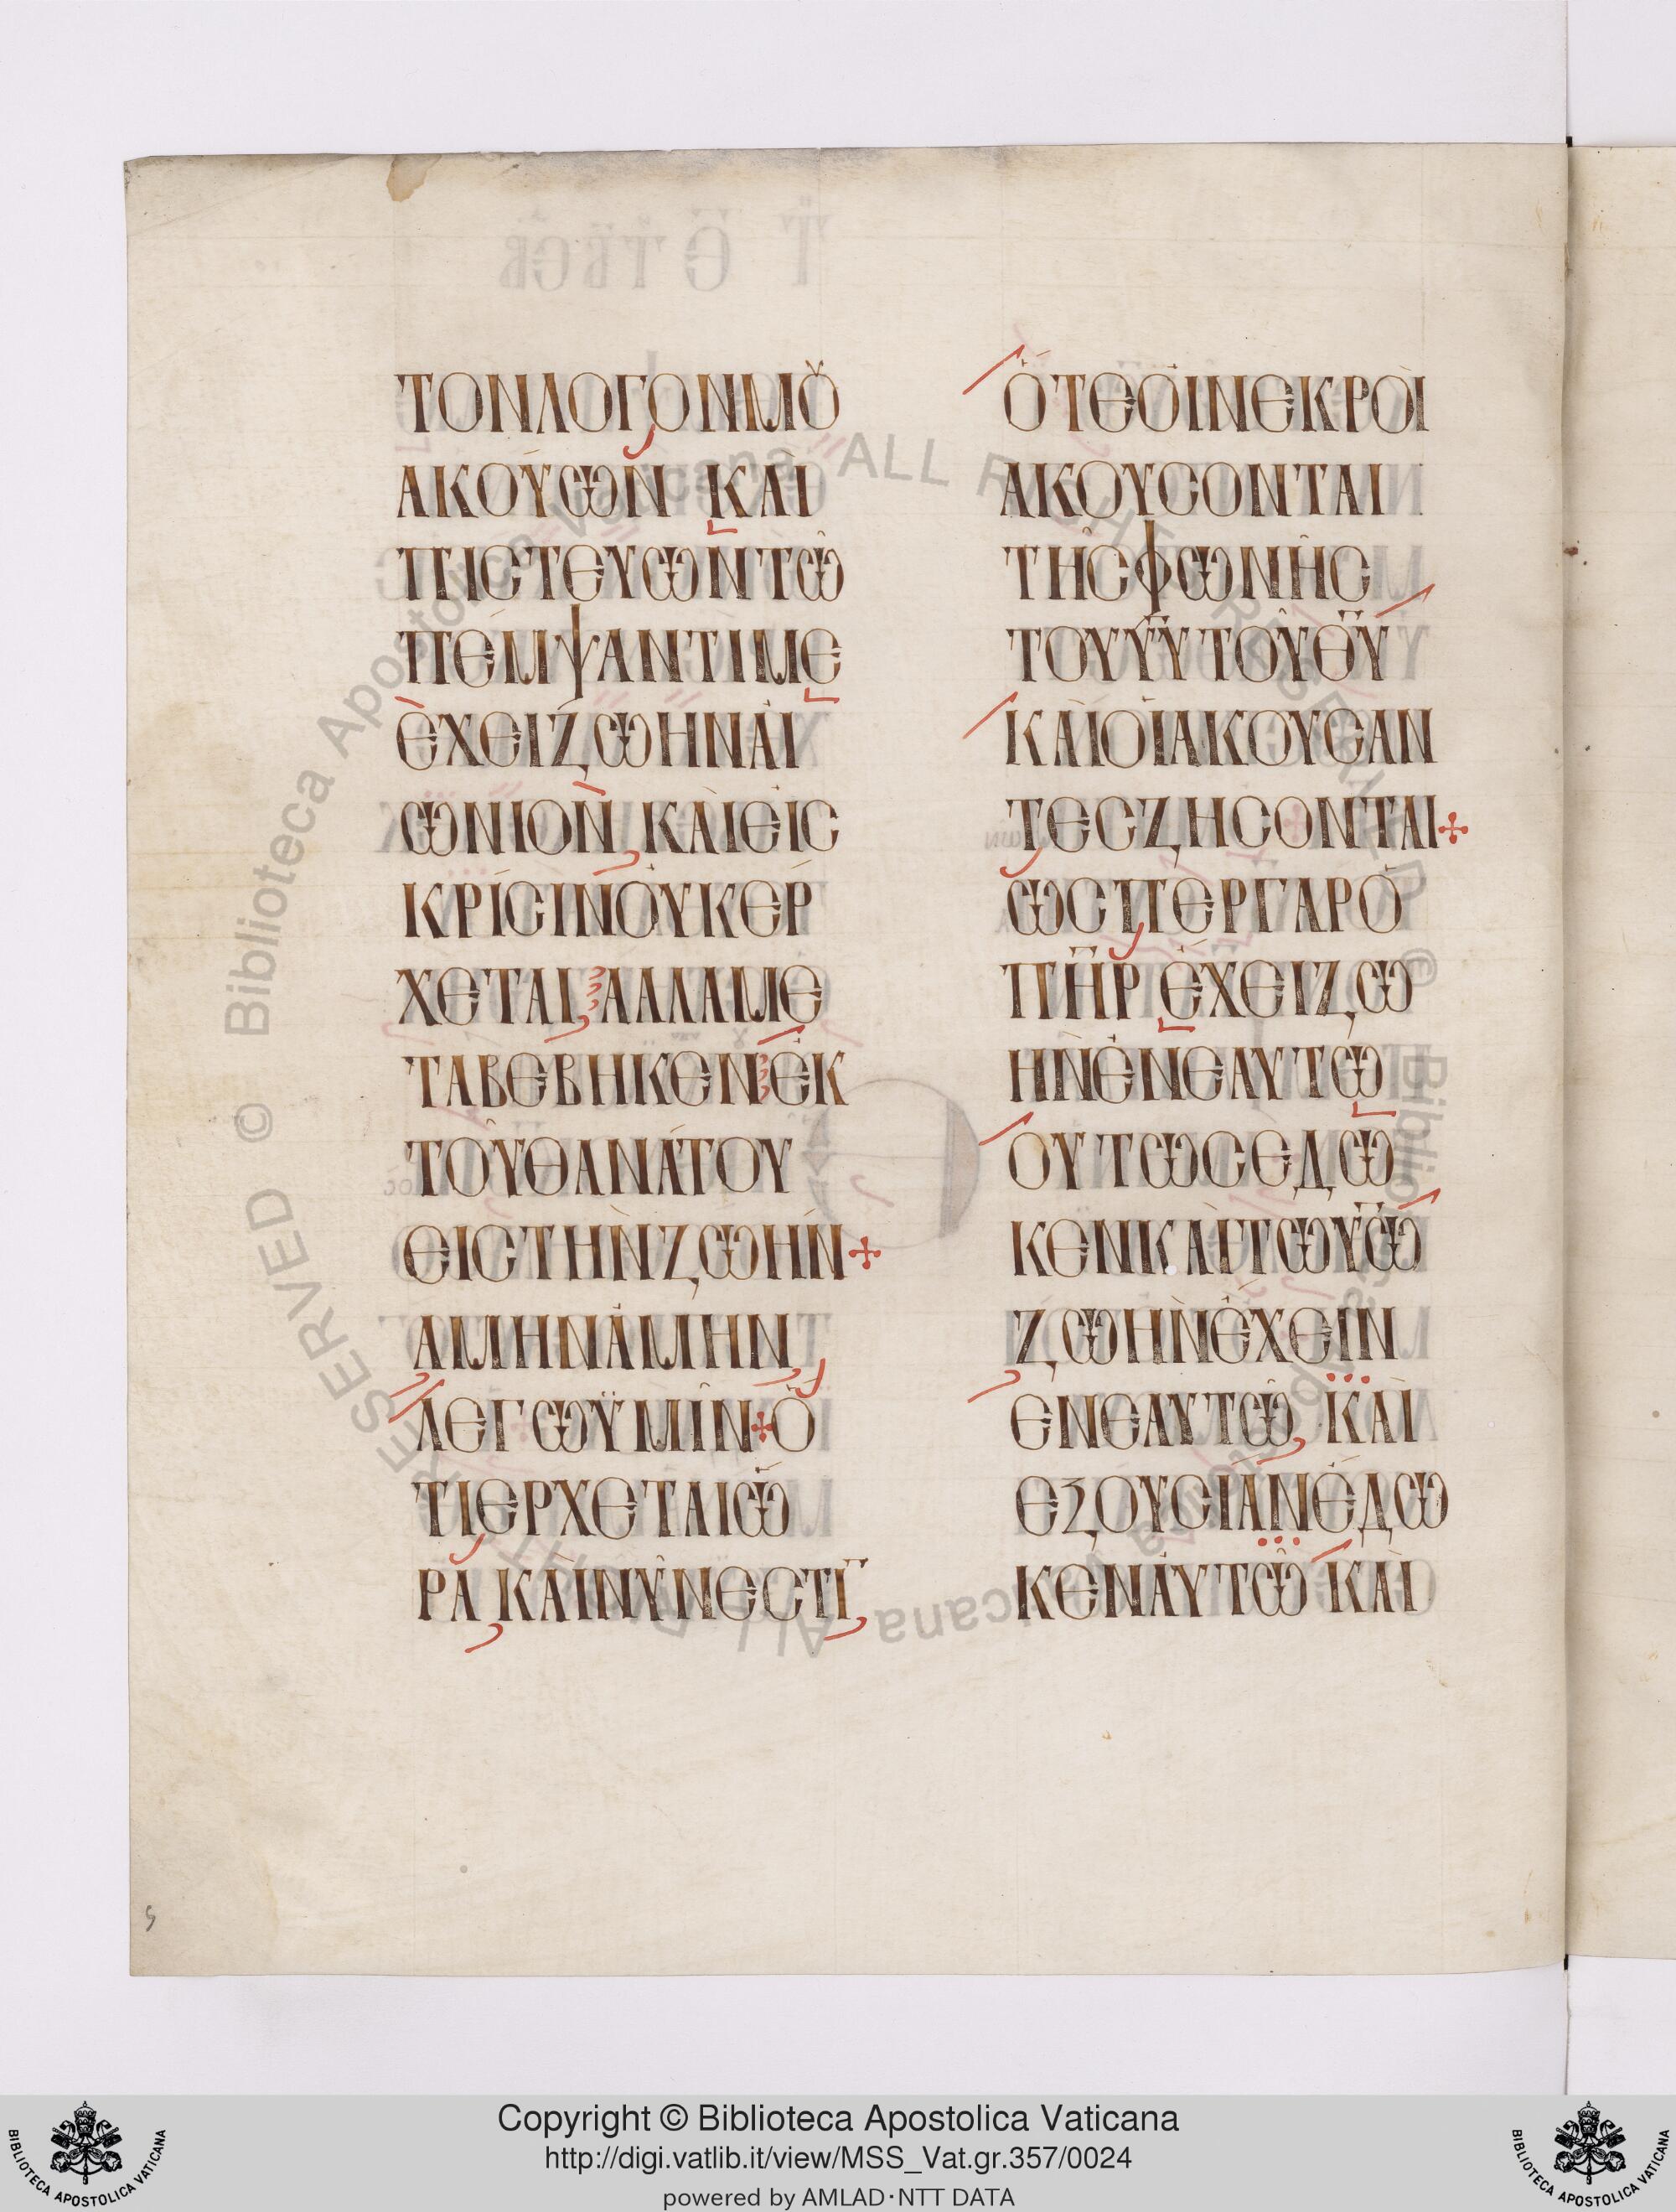 ΤΟΝΛΟΓΟΝΜȢ
ΑΚΟΎΩΝ ΚΑῚ
ΠΙΣΤΕΎΩΝΤΩ͂
ΠΈΜΨΑΝΤΊΜΕ
ἜΧΕΙΖΩῊΝΑἸ
ΏΝΙΟΝ, ΚΑῚΕἸΣ
ΚΡΊΣΙΝΟὐΚΕΡ
ΧΕΤΑΙ ΑΛΛΑΜΕ
ΤΑΒΕΒΗΚΕΝἘΚ
ΤΟΥ͂ΘΑΝΆΤΟΥ
ΕΙΣΤῊΝΖΩΉΝ+
ΑΜΗΝἈΜΗΝ
ΛΕΓΩΫΜΙ͂Ν+Ὁ
ΤΙΕΡΧΕΤΑΙὭ
ΡΑ ΚΑῚΝΥ͂ΝΕΣΤῙ
ὍΤΕΟἹΝΕΚΡΟῚ
ΑΚΟΥΣΟΝΤΑΙ
ΤΗ͂ΣΦΩΝΗ͂Σ
ΤΟΥΥ̅Υ̅ΤΟΥ͂Θ̅Υ̅
ΚΑῚΟἹΑΚΟΥΣΑΝ
ΤΕΣΖΗΣΟΝΤΑΙ+
ΩΣΠΕΡΓΑΡΟ
Π̅Η̅Ρ̅ ἜΧΕΙΖΩ
ῊΝἘΝΕΑΥΤΩ͂
ΟΥΤΩΣΕΔΩ
ΚΕΝΚΑῚΤΩΥ̅Ω̅
ΖΩῊΝἜΧΕΙΝ
ΕΝΕΑΥΤΩ͂, ΚΑῚ
ΕΞΟΥΣΙΆΝἜΔΩ
ΚΕΝΑὐΤΩ͂ ΚΑῚ
5
© Biblioteca Apostolica Vaticana ALL RIGHTS RESERVED
Copyright © Biblioteca Apostolica Vaticana
http://digi.vatlib.it/view/MSS_Vat.gr.357/0024
powered by AMLAD·NTT DATA
BIBLIOTECA APOSTOLICA VATICANA
BIBLIOTECA APOSTOLICA VATICANA